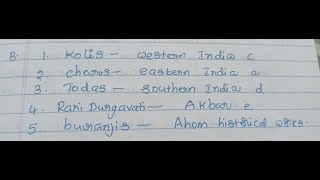 B. 1. Kolis – western India c
2. cheros – eastern India a
3. Todas – southern India d
4. Rani Durgavati – Akbar e
5. buranjis – Ahom historical